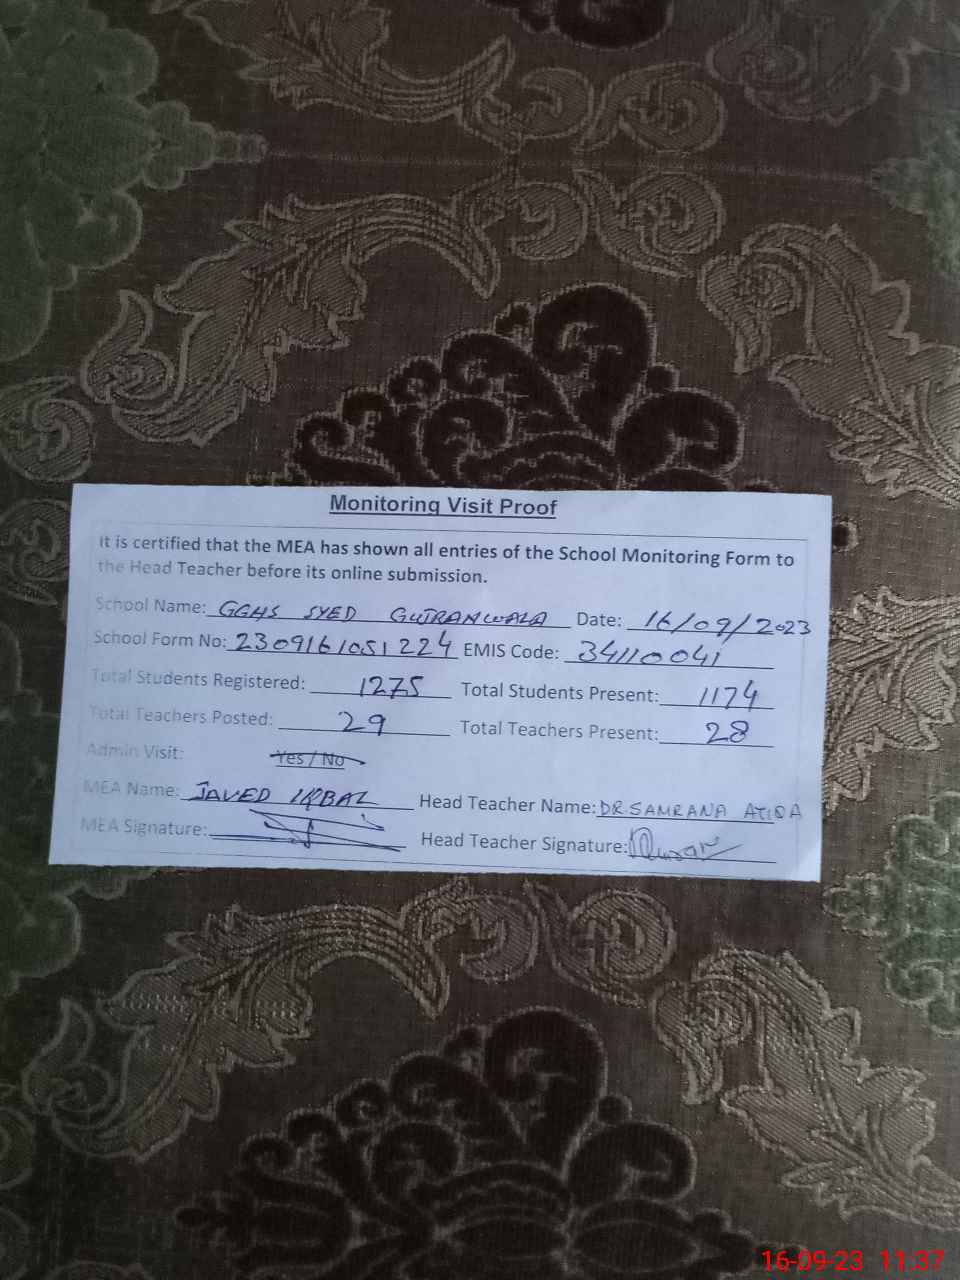 Monitoring Visit Proof
It is certified that the MEA has shown all entries of the School Monitoring Form to
the Head Teacher before its online submission.
School Name: GGHS SYED GUJRANWALA Date: 16/09/2023
School Form No: 2309161051224 EMIS Code: 34110041
Total Students Registered: 1275 Total Students Present: 1174
Total Teachers Posted: 29 Total Teachers Present: 28
Admin Visit: Yes / No
MEA Name: JAVED IQBAL Head Teacher Name: DR. SAMRANA
MEA Signature: Head Teacher Signature:
16-09-23 11:37